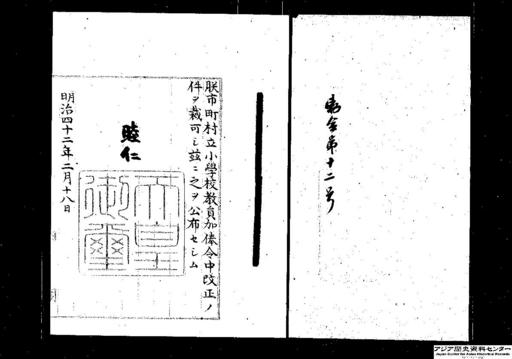 勅令第十二号
朕市町村立小學校教員加俸令中改正ノ
件ヲ裁可シ茲ニ之ヲ公布セシム
睦仁
天皇御璽
明治四十二年二月十八日
アジア歴史資料センター
Japan Center for Asian Historical Records